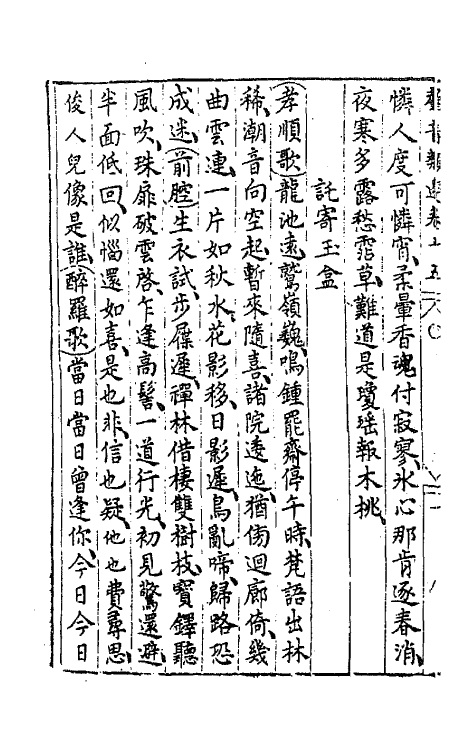 憐人度可憐宵、柔暈香魂付寂寥、氷心那肯逐春消、
夜寒多露愁霑草、難道是瓊瑶報木桃、
託寄玉盒
孝順歌龍池遠、鷲嶺巍、鳴鍾罷齋停午時、梵語出林
稀、潮音向空起、暫來隨喜、諸院逶迤、猶傍迴廊倚、幾
曲雲連、一片如秋水、花影移、日影遲、鳥亂啼、歸路恐
成迷、前腔生衣試、步屧遲、禪林借棲雙樹枝、寶鐸聽
風吹、珠扉破雲啓、乍逢高髻、一道行光、初見驚還避、
半面低回、似惱還如喜、是也非、信也疑、他也費尋思、
俊人兒像是誰、醉羅歌當日當日曾逢你、今日今日